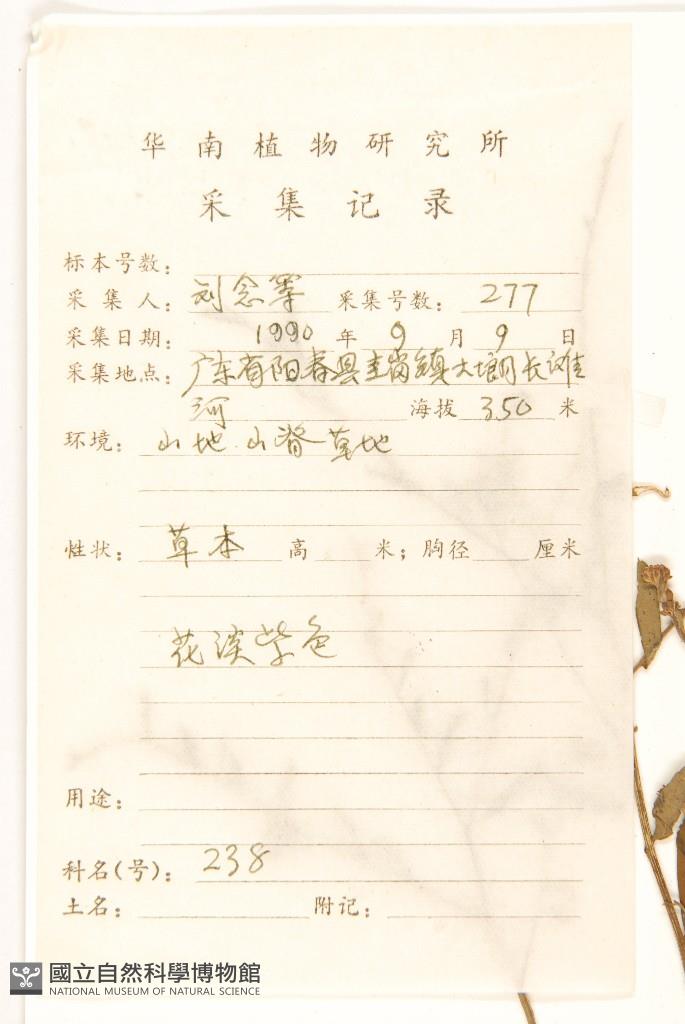 华南植物研究所
采集记录
标本号数：
采集人：刘念军 采集号数：277
采集日期：1990年9月9日
采集地点：广东省阳春县圭岗镇大垠冈长滩
河 海拔 350 米
环境：山地.山脊草地
性状：草本 高 米；胸径 厘米
花淡紫色
用途：
科名(号)：238
土名： 附记：
國立自然科學博物館
NATIONAL MUSEUM OF NATURAL SCIENCE